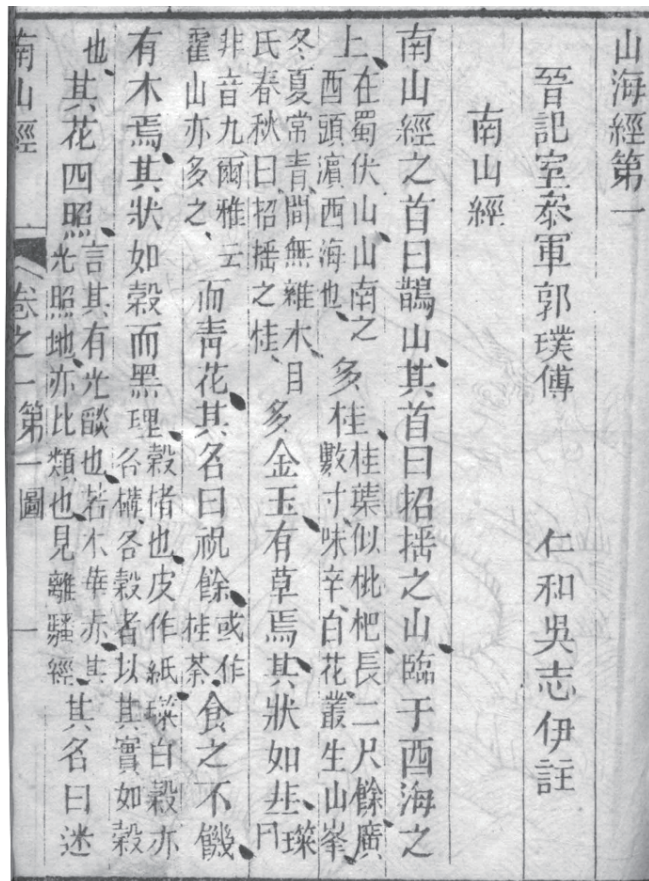 山海經第一
晉記室叅軍郭璞傳 仁和吳志伊註
南山經
南山經之首曰鵲山其首曰招搖之山臨于西海之
上在蜀伏山山南之西頭濱西海也多桂桂葉似枇杷長二尺餘廣數寸味辛白花叢生山峯
冬夏常青間無雜木呂氏春秋曰招搖之桂多金玉有草焉其狀如韭璨曰
韭音九爾雅云霍山亦多之而青花其名曰祝餘或作桂荼食之不饑
有木焉其狀如榖而黑理榖楮也皮作紙璨曰榖亦名構名榖者以其實如榖
也其花四照言其有光燄也若木華赤其光照地亦比類也見離騷經其名曰迷
南山經 卷之一 第一圖 一